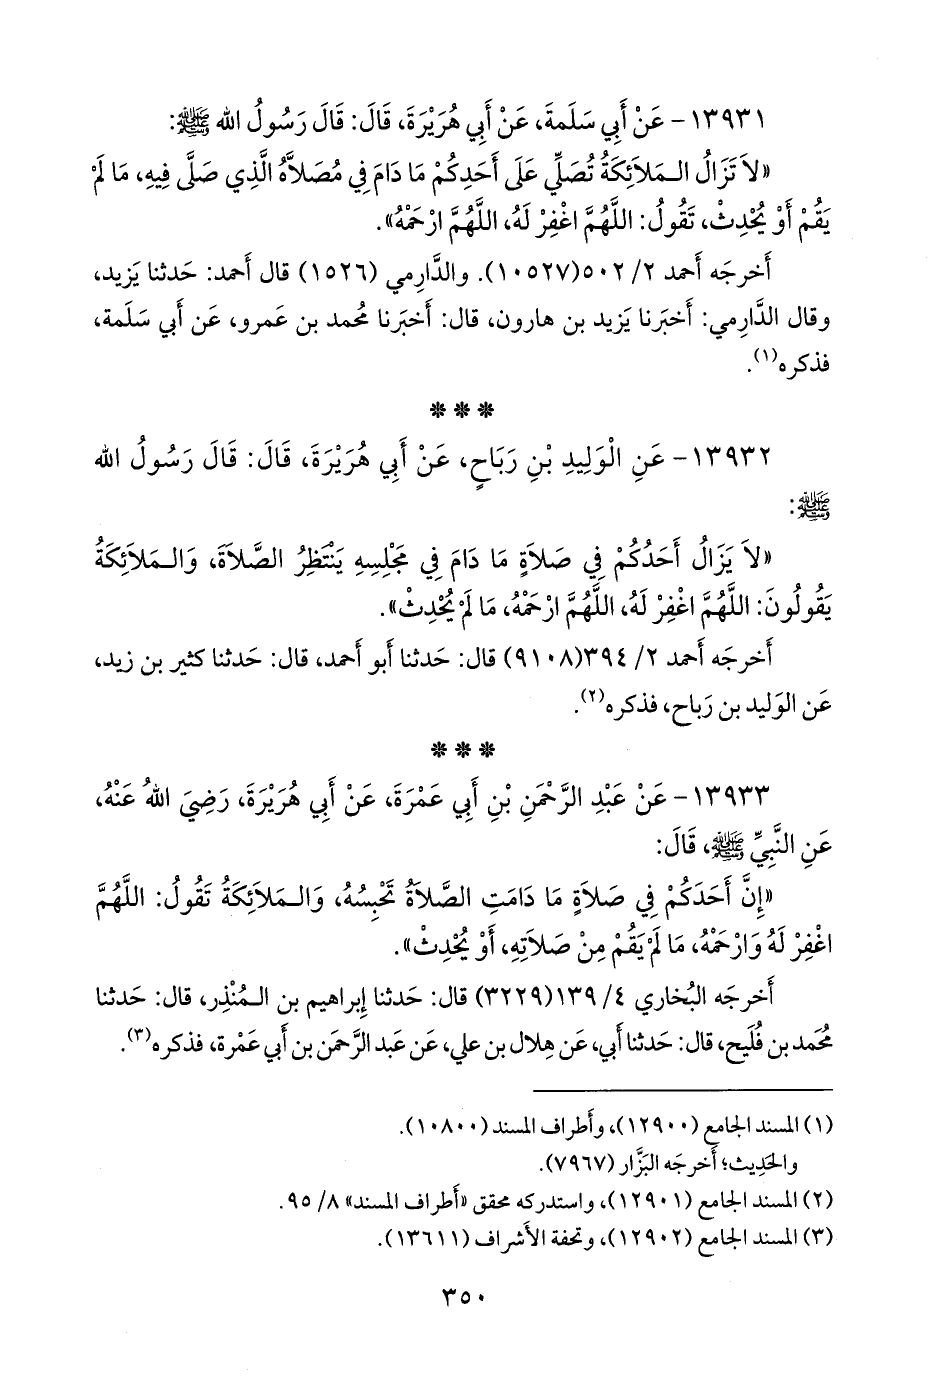 ١٣٩٣١- عَنْ أَبِي سَلَمةَ، عَنْ أَبِي هُرَيْرَةَ، قَالَ: قَالَ رَسُولُ الله ﷺ:
«لاَ تَزَالُ الـمَلاَئِكَةُ تُصَلِّي عَلَى أَحَدِكُمْ مَا دَامَ فِي مُصَلاَّهُ الَّذِي صَلَّى فِيهِ، مَا لَمْ
يَقُمْ أَوْ يُحْدِثْ، تَقُولُ: اللَّهُمَّ اغْفِرْ لَهُ، اللَّهُمَّ ارْحَمْهُ».
أَخرجَه أَحمد ٢/ ٥٠٢(١٠٥٢٧). والدَّارِمي (١٥٢٦) قال أَحمد: حَدثنا يَزيد،
وقال الدَّارِمي: أَخبَرنا يَزيد بن هارون، قال: أَخبَرنا مُحمد بن عَمرو، عَن أَبي سَلَمة،
فذكره(١).
* * *
١٣٩٣٢- عَنِ الْوَلِيدِ بْنِ رَبَاحٍ، عَنْ أَبِي هُرَيْرَةَ، قَالَ: قَالَ رَسُولُ الله
ﷺ:
«لاَ يَزَالُ أَحَدُكُمْ فِي صَلاَةٍ مَا دَامَ فِي مَجْلِسِهِ يَنْتَظِرُ الصَّلاَةَ، وَالـمَلاَئِكَةُ
يَقُولُونَ: اللَّهُمَّ اغْفِرْ لَهُ، اللَّهُمَّ ارْحَمْهُ، مَا لَمْ يُحْدِثْ».
أَخرجَه أَحمد ٢/ ٣٩٤(٩١٠٨) قال: حَدثنا أَبو أَحمد، قال: حَدثنا كثير بن زيد،
عَن الوَليد بن رَباح، فذكره(٢).
* * *
١٣٩٣٣- عَنْ عَبْدِ الرَّحْمَنِ بْنِ أَبِي عَمْرَةَ، عَنْ أَبِي هُرَيْرَةَ، رَضِيَ اللهُ عَنْهُ،
عَنِ النَّبِيِّ ﷺ، قَالَ:
«إِنَّ أَحَدَكُمْ فِي صَلاَةٍ مَا دَامَتِ الصَّلاَةُ تَحْبِسُهُ، وَالـمَلاَئِكَةُ تَقُولُ: اللَّهُمَّ
اغْفِرْ لَهُ وَارْحَمْهُ، مَا لَمْ يَقُمْ مِنْ صَلاَتِهِ، أَوْ يُحْدِثْ».
أَخرجَه البُخاري ٤/ ١٣٩(٣٢٢٩) قال: حَدثنا إِبراهيم بن الـمُنْذِر، قال: حَدثنا
مُحمد بن فُلَيح، قال: حَدثنا أَبي، عَن هِلال بن علي، عَن عَبد الرَّحمَن بن أَبي عَمْرة، فذكره(٣).
(١) المسند الجامع (١٢٩٠٠)، وأَطراف المسند (١٠٨٠٠).
والحَدِيث؛ أَخرجَه البَزَّار (٧٩٦٧).
(٢) المسند الجامع (١٢٩٠١)، واستدركه محقق «أَطراف المسند» ٨/ ٩٥.
(٣) المسند الجامع (١٢٩٠٢)، وتحفة الأَشراف (١٣٦١١).
٣٥٠